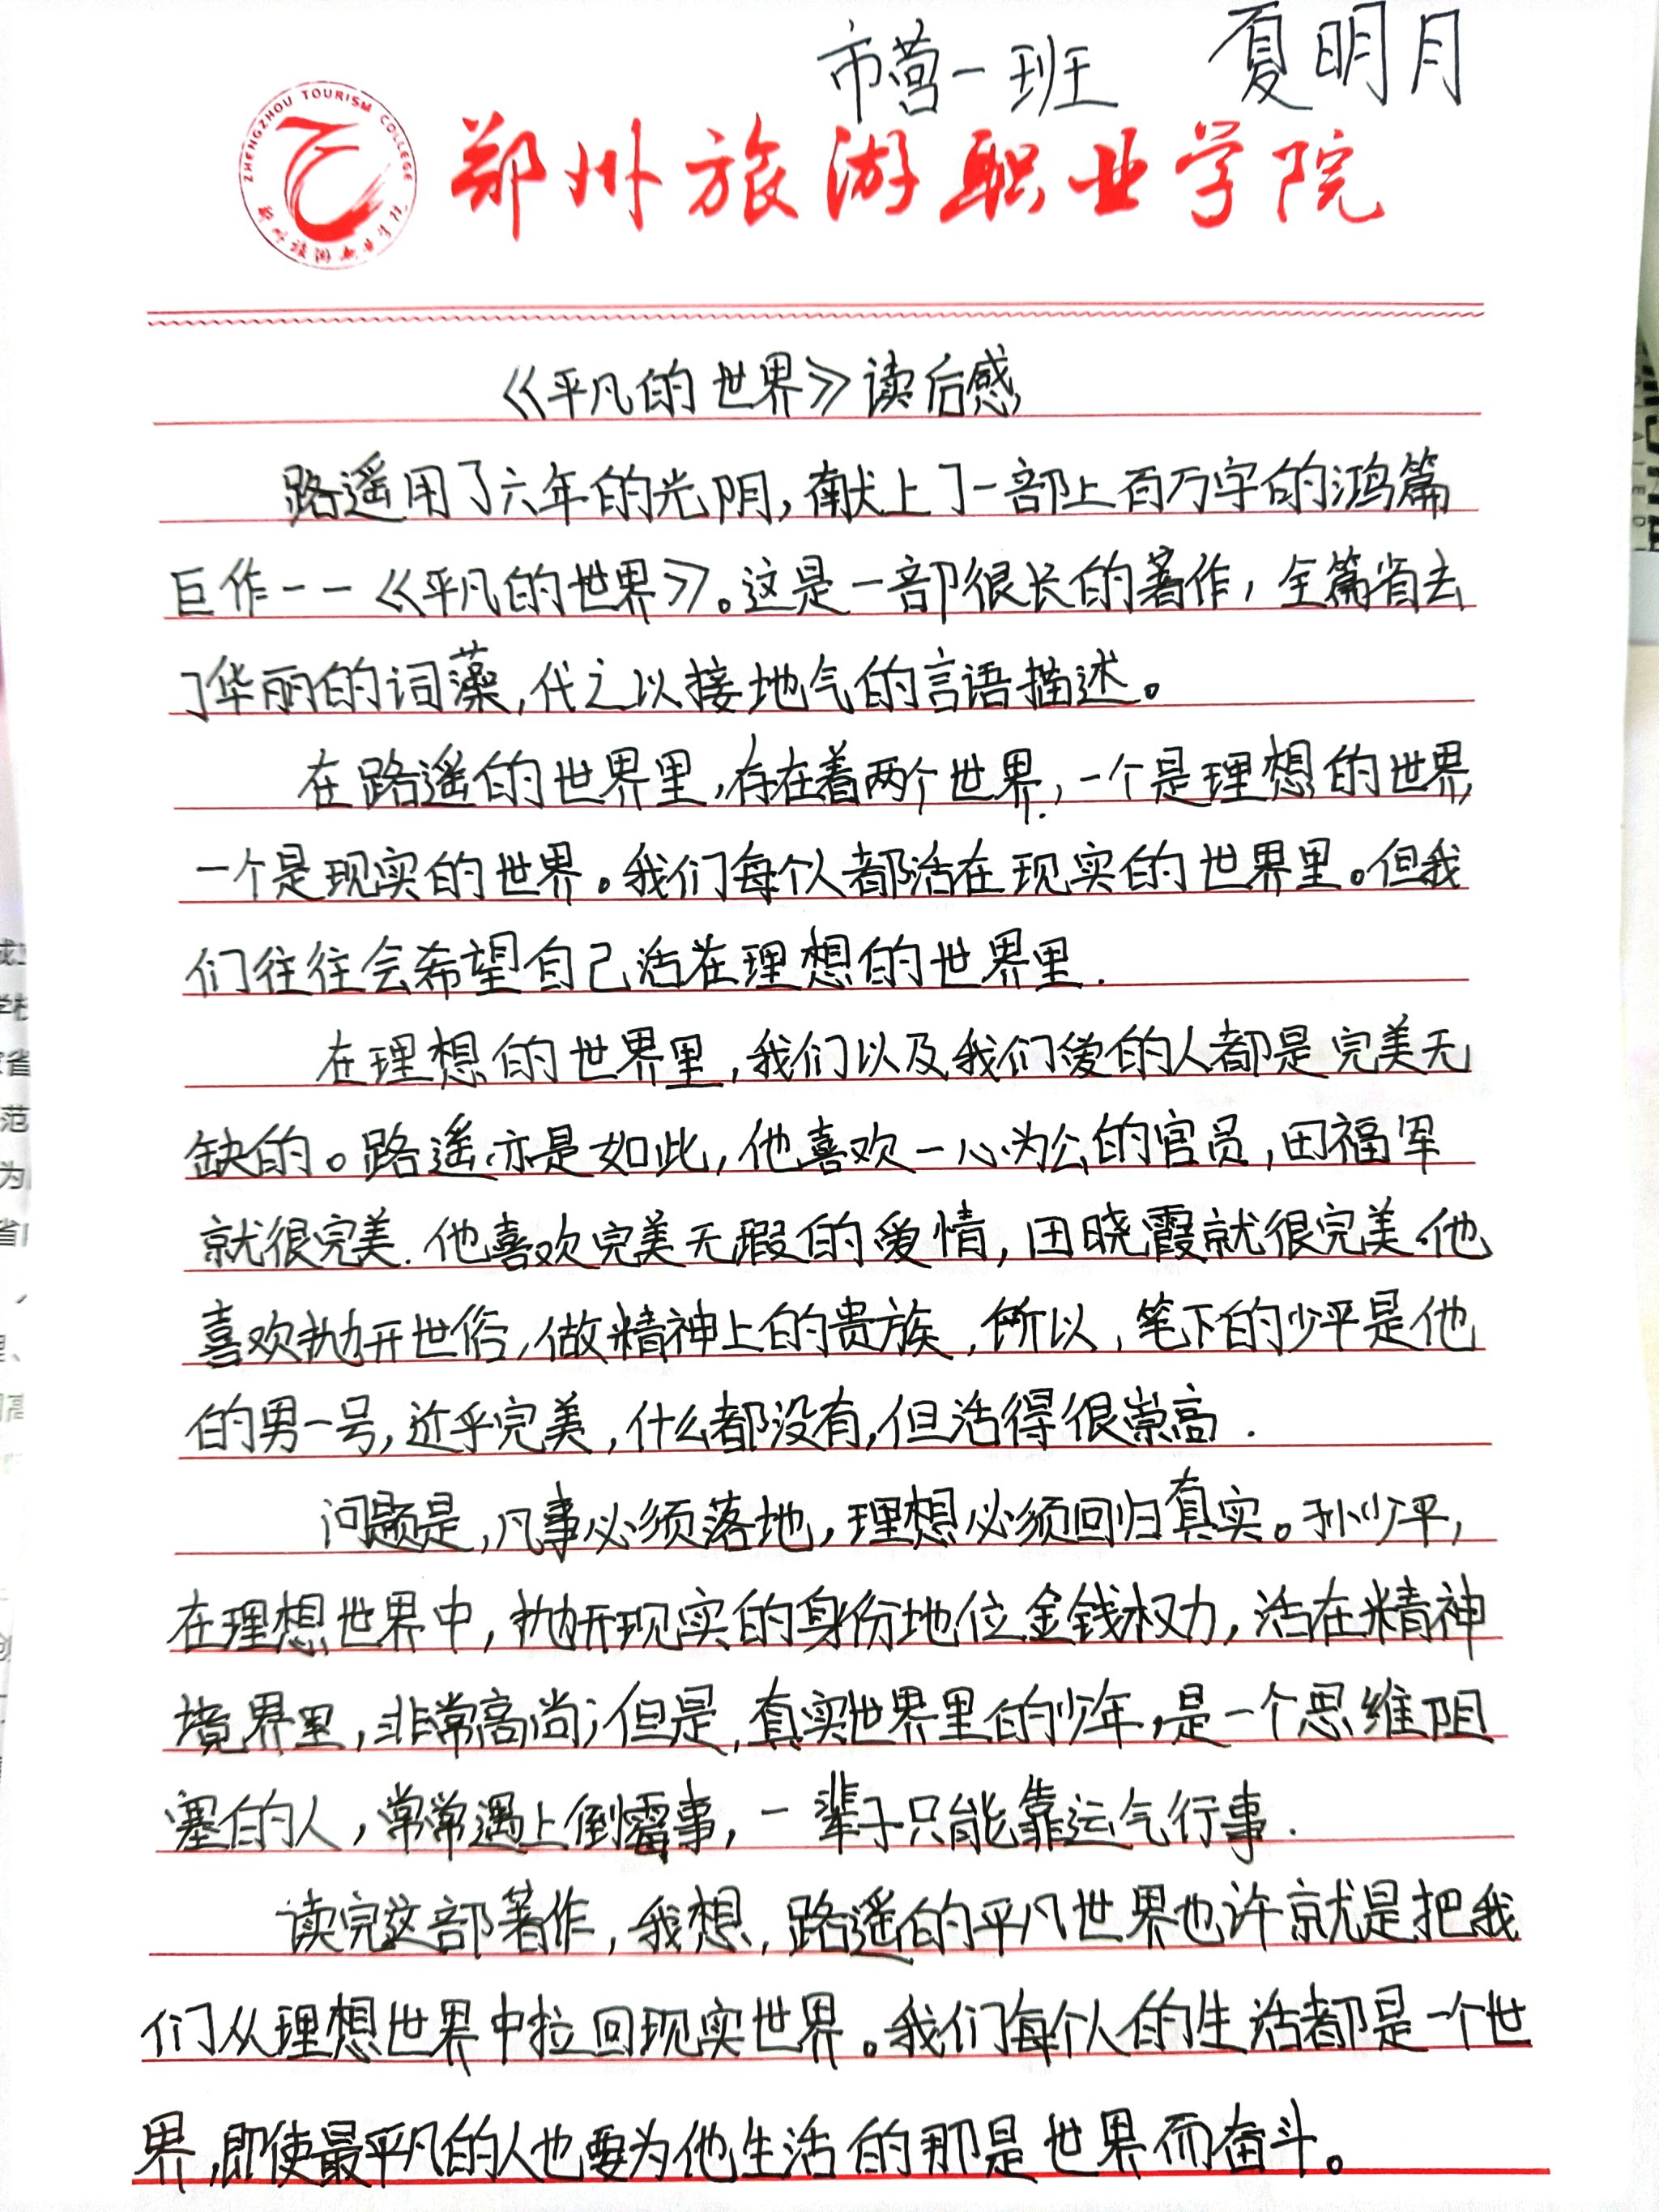 市营一班 夏明月
ZHENGZHOU TOURISM COLLEGE
郑州旅游职业学院
郑州旅游职业学院
《平凡的世界》读后感
路遥用了六年的光阴，献上了一部上百万字的鸿篇
巨作——《平凡的世界》。这是一部很长的著作，全篇省去
了华丽的词藻，代之以接地气的言语描述。
在路遥的世界里，存在着两个世界，一个是理想的世界，
一个是现实的世界。我们每个人都活在现实的世界里。但我
们往往会希望自己活在理想的世界里.
在理想的世界里，我们以及我们爱的人都是完美无
缺的。路遥亦是如此，他喜欢一心为公的官员，田福军
就很完美.他喜欢完美无瑕的爱情，田晓霞就很完美.他
喜欢抛开世俗，做精神上的贵族，所以，笔下的少平是他
的男一号，近乎完美，什么都没有，但活得很崇高.
问题是，凡事必须落地，理想必须回归真实。孙少平，
在理想世界中，抛开现实的身份地位金钱权力，活在精神
境界里，非常高尚；但是，真实世界里的少年，是一个思维阻
塞的人，常常遇上倒霉事，一辈子只能靠运气行事.
读完这部著作，我想，路遥的平凡世界也许就是把我
们从理想世界中拉回现实世界。我们每个人的生活都是一个世
界，即使最平凡的人也要为他生活的那是世界而奋斗。